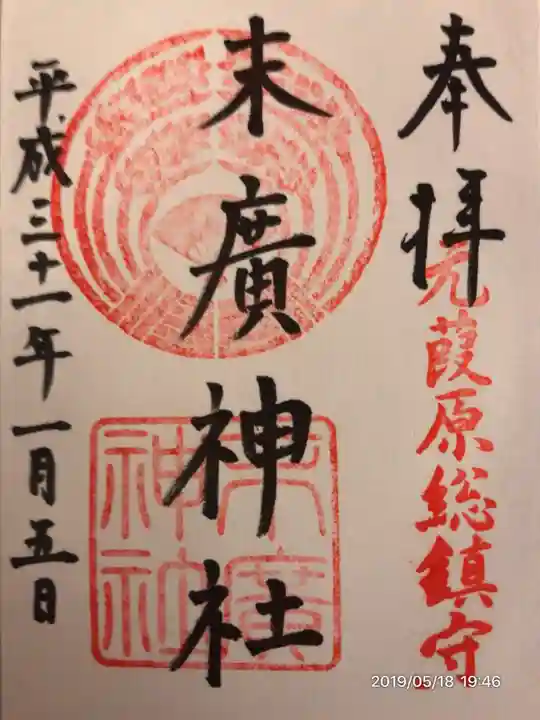 奉拝
元葭原総鎮守
末廣神社
末廣神社
平成三十一年一月五日
2019/05/18 19:46